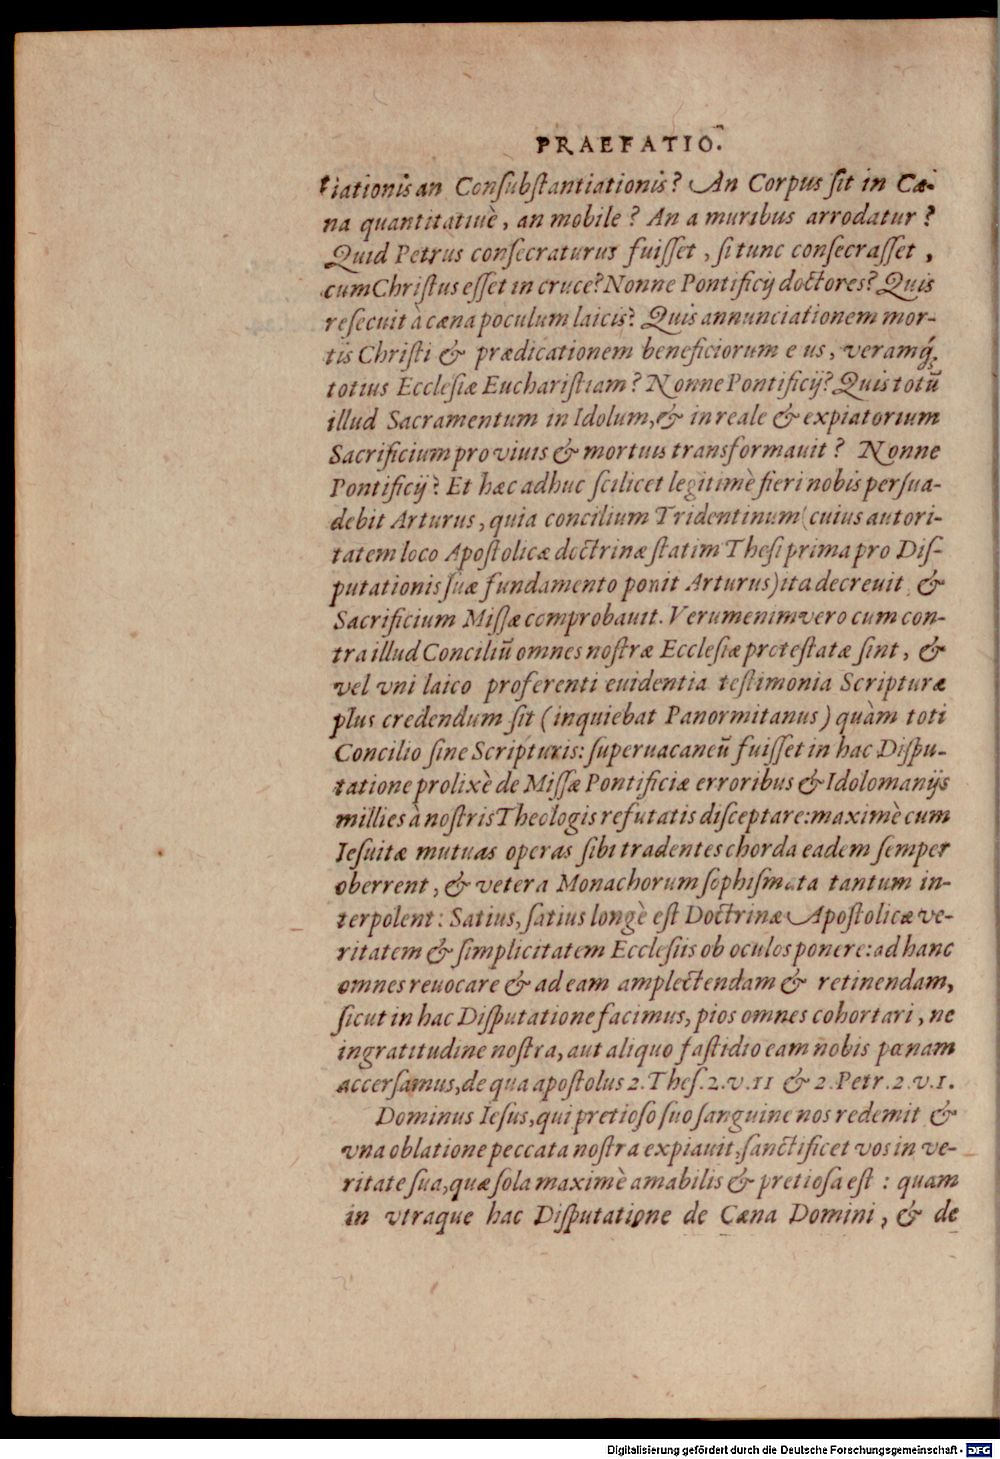 PRAEFATIO.
tiationis an Conſubſtantiationis? An Corpus ſit in Cœ-
na quantitatiuè, an mobile? An a muribus arrodatur?
Quid Petrus conſecraturus fuiſſet, ſi tunc conſecraſſet,
cum Chriſtus eſſet in cruce? Nonne Pontificij doctores? Quis
reſecuit à cœna poculum laicis? Quis annunciationem mor-
tis Chriſti & prædicationem beneficiorum eius, veramq́;
totius Eccleſiæ Euchariſtiam? Nonne Pontificij? Quis totũ
illud Sacramentum in Idolum, & in reale & expiatorium
Sacrificium pro viuis & mortuis transformauit? Nonne
Pontificij? Et hæc adhuc ſcilicet legitimè fieri nobis perſua-
debit Arturus, quia concilium Tridentinum (cuius autori-
tatem loco Apoſtolicæ doctrinæ ſtatim Theſi prima pro Diſ-
putationis ſuæ fundamento ponit Arturus) ita decreuit, &
Sacrificium Miſſæ comprobauit. Verumenimvero cum con-
tra illud Conciliũ omnes noſtræ Eccleſiæ proteſtatæ ſint, &
vel vni laico proferenti euidentia teſtimonia Scripturæ
plus credendum ſit (inquiebat Panormitanus) quàm toti
Concilio ſine Scripturis: ſuperuacaneũ fuiſſet in hac Diſpu-
tatione prolixè de Miſſæ Pontificiæ erroribus & Idolomanijs
millies à noſtris Theologis refutatis diſceptare: maximè cum
Ieſuitæ mutuas operas ſibi tradentes chorda eadem ſemper
oberrent, & vetera Monachorum ſophiſmata tantum in-
terpolent: Satius, ſatius longè eſt Doctrinæ Apoſtolicæ ve-
ritatem & ſimplicitatem Eccleſiis ob oculos ponere: ad hanc
omnes reuocare & ad eam amplectendam & retinendam,
ſicut in hac Diſputatione facimus, pios omnes cohortari, ne
ingratitudine noſtra, aut aliquo faſtidio eam nobis pœnam
accerſamus, de qua apoſtolus 2. Theſ. 2. v. 11 & 2. Petr. 2. v. 1.
Dominus Ieſus, qui pretioſo ſuo ſanguine nos redemit &
vna oblatione peccata noſtra expiauit, ſanctificet vos in ve-
ritate ſua, quæ ſola maximè amabilis & pretioſa eſt: quam
in vtraque hac Diſputatione de Cœna Domini, & de
Digitalisierung gefördert durch die Deutsche Forschungsgemeinschaft - DFG